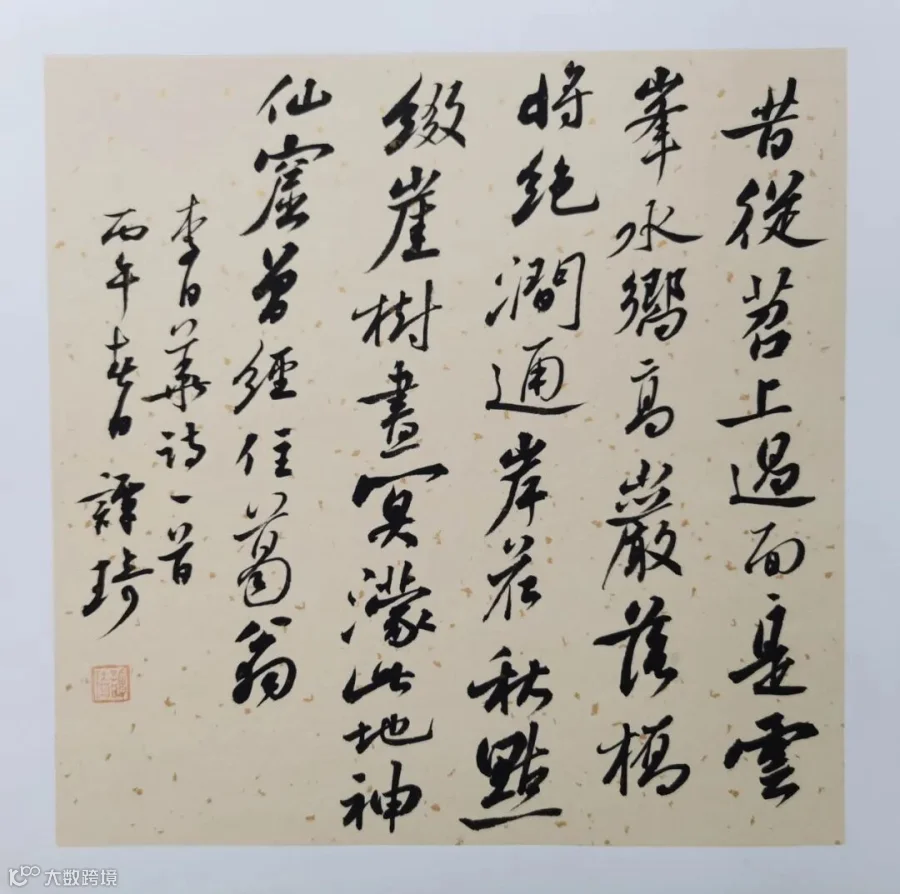 昔從苕上過面是雲
峯水響高巖落橋
將絕澗通岸花秋點
綴崖樹晝冥濛此地神
仙窟曾經住葛翁
李日華詩一首
丙午春日 譚琦
大数跨境